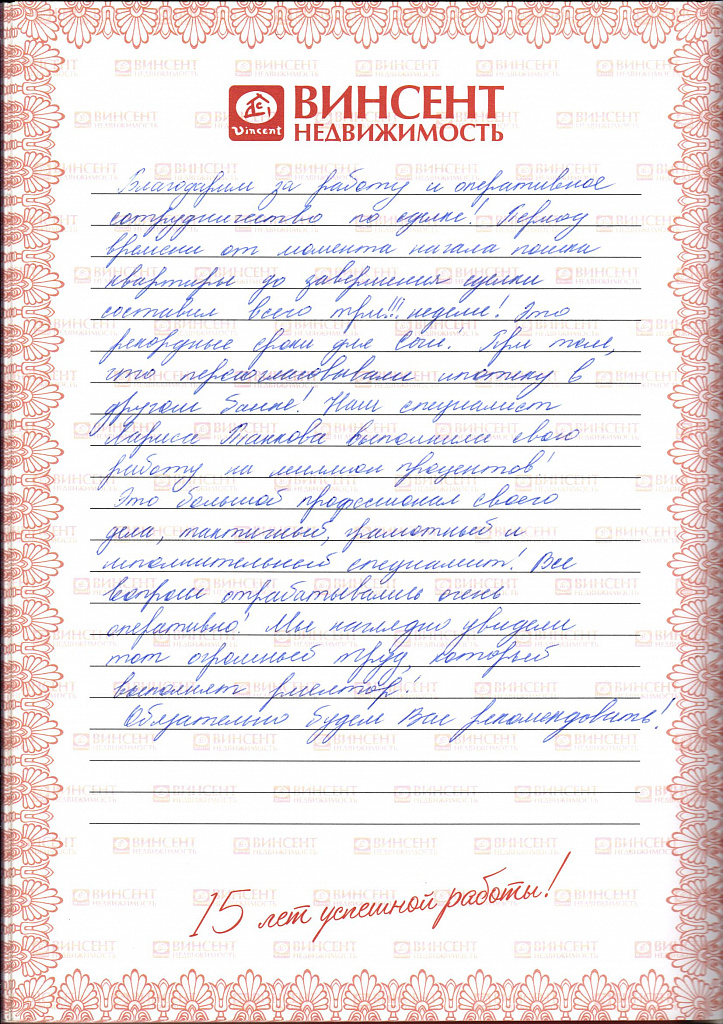 Vincent
ВИНСЕНТ
НЕДВИЖИМОСТЬ
Благодарим за работу и оперативное
сотрудничество по сделке! Период
времени от момента начала поиска
квартиры до завершения сделки
составил всего три!!! недели! Это
рекордные сроки для Сочи! При том,
что пересогласовывали ипотеку в
другом банке! Наш специалист
Лариса выполнила свою
работу на миллион процентов!
Это большой профессионал своего
дела, тактичный, грамотный и
исполнительный специалист! Все
вопросы отрабатывались очень
оперативно! Мы наглядно увидели
тот огромный труд, который
выполняет риелтор!
Обязательно будем Вас рекомендовать!
15 лет успешной работы!